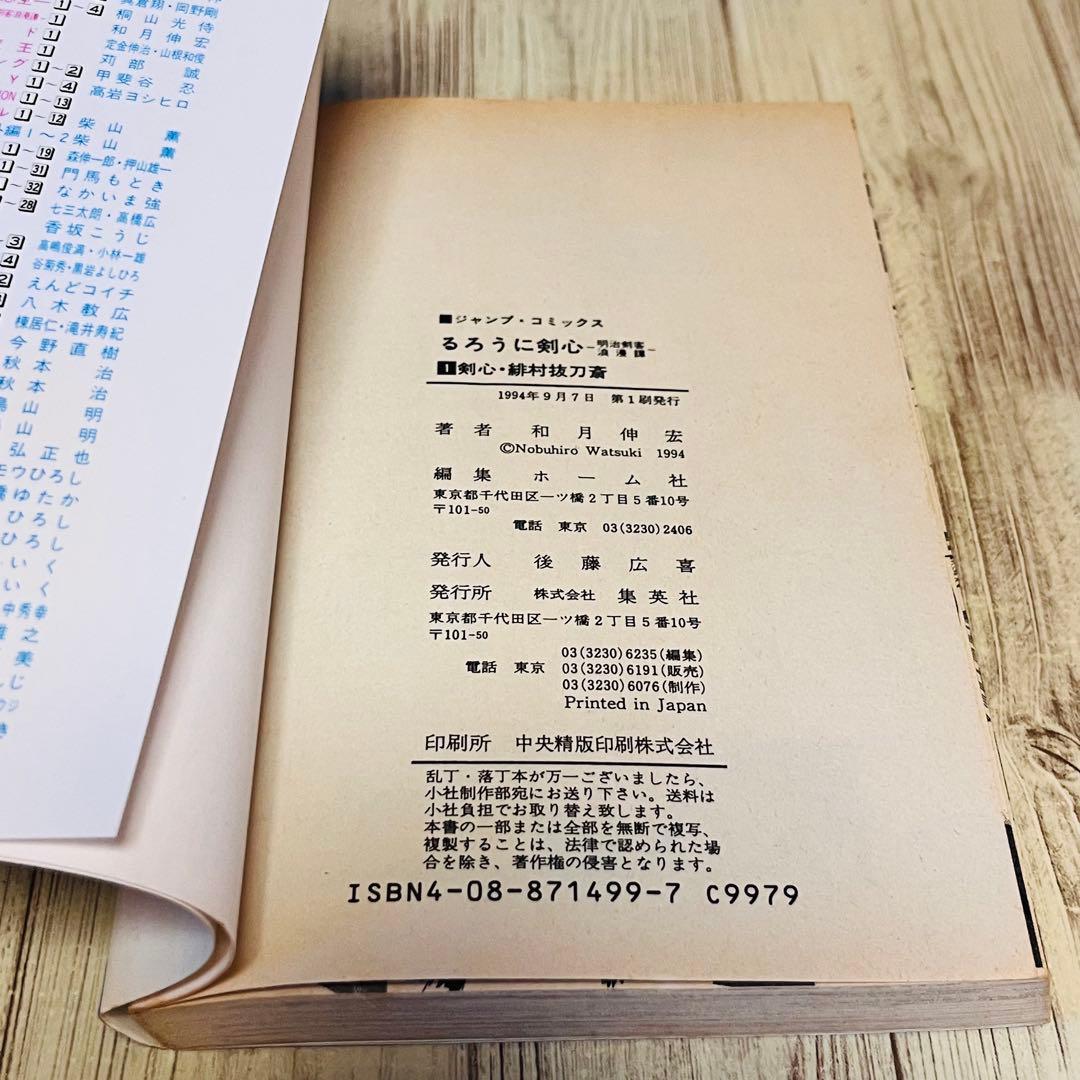 1～4 真倉翔・岡野剛
1 桐山光侍
ド1 和月伸宏
王1 定金伸治・山根和俊
グ1～2 苅部誠
Y1～4 甲斐谷忍
ION1～13 高岩ヨシヒロ
ル1～12 柴山薫
外編1～2 柴山薫
1～19 森伸一郎・押山雄一
1～31 門馬もとき
～32 なかいま強
～28 七三太朗・高橋広
香坂こうじ
～3 高嶋俊満・小林一雄
4 谷菊秀・黒岩よしひろ
2 えんどコイチ
八木教広
棟居仁・滝井寿紀
今野直樹
秋本治
秋本治
鳥山明
山明
弘正也
モウひろし
橋ゆたか
ひろし
ひろし
いく
いく
中秀幸
雅之
美
んじ
■ジャンプ・コミックス
るろうに剣心－明治剣客浪漫譚－
1剣心・緋村抜刀斎
1994年9月7日 第1刷発行
著者 和月伸宏
©Nobuhiro Watsuki 1994
編集 ホーム社
東京都千代田区一ツ橋2丁目5番10号
〒101-50
電話 東京 03(3230)2406
発行人 後藤広喜
発行所 株式会社 集英社
東京都千代田区一ツ橋2丁目5番10号
〒101-50
03(3230)6235(編集)
電話 東京 03(3230)6191(販売)
03(3230)6076(制作)
Printed in Japan
印刷所 中央精版印刷株式会社
乱丁・落丁本が万一ございましたら、
小社制作部宛にお送り下さい。送料は
小社負担でお取り替え致します。
本書の一部または全部を無断で複写、
複製することは、法律で認められた場
合を除き、著作権の侵害となります。
ISBN4-08-871499-7 C9979